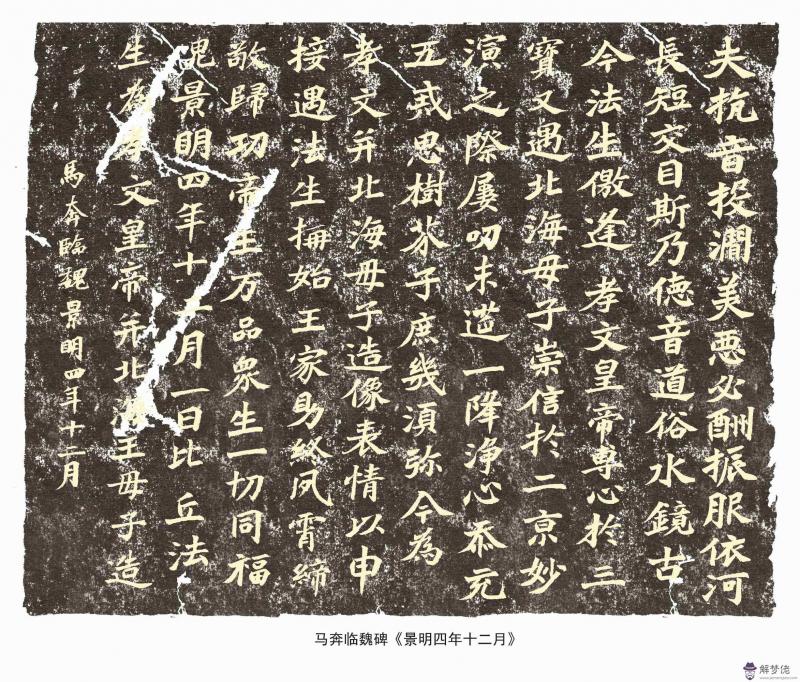 夫抗音投澗美惡必酬振服依河
長短交目斯乃德音道俗水鏡古
今法生儌逢孝文皇帝專心於三
寶又遇北海母子崇信於二京妙
演之際屢叨末莚一降淨心忝充
五戒思樹芥子庶幾須弥今為
孝文并北海母子造像表情以申
接遇法生構始王家助終夙霄締
敬歸功帝王万品眾生一切同福
魏景明四年十二月一日比丘法
生為孝文皇帝并北海王母子造
馬奔臨魏景明四年十二月
马奔临魏碑《景明四年十二月》
解梦佬